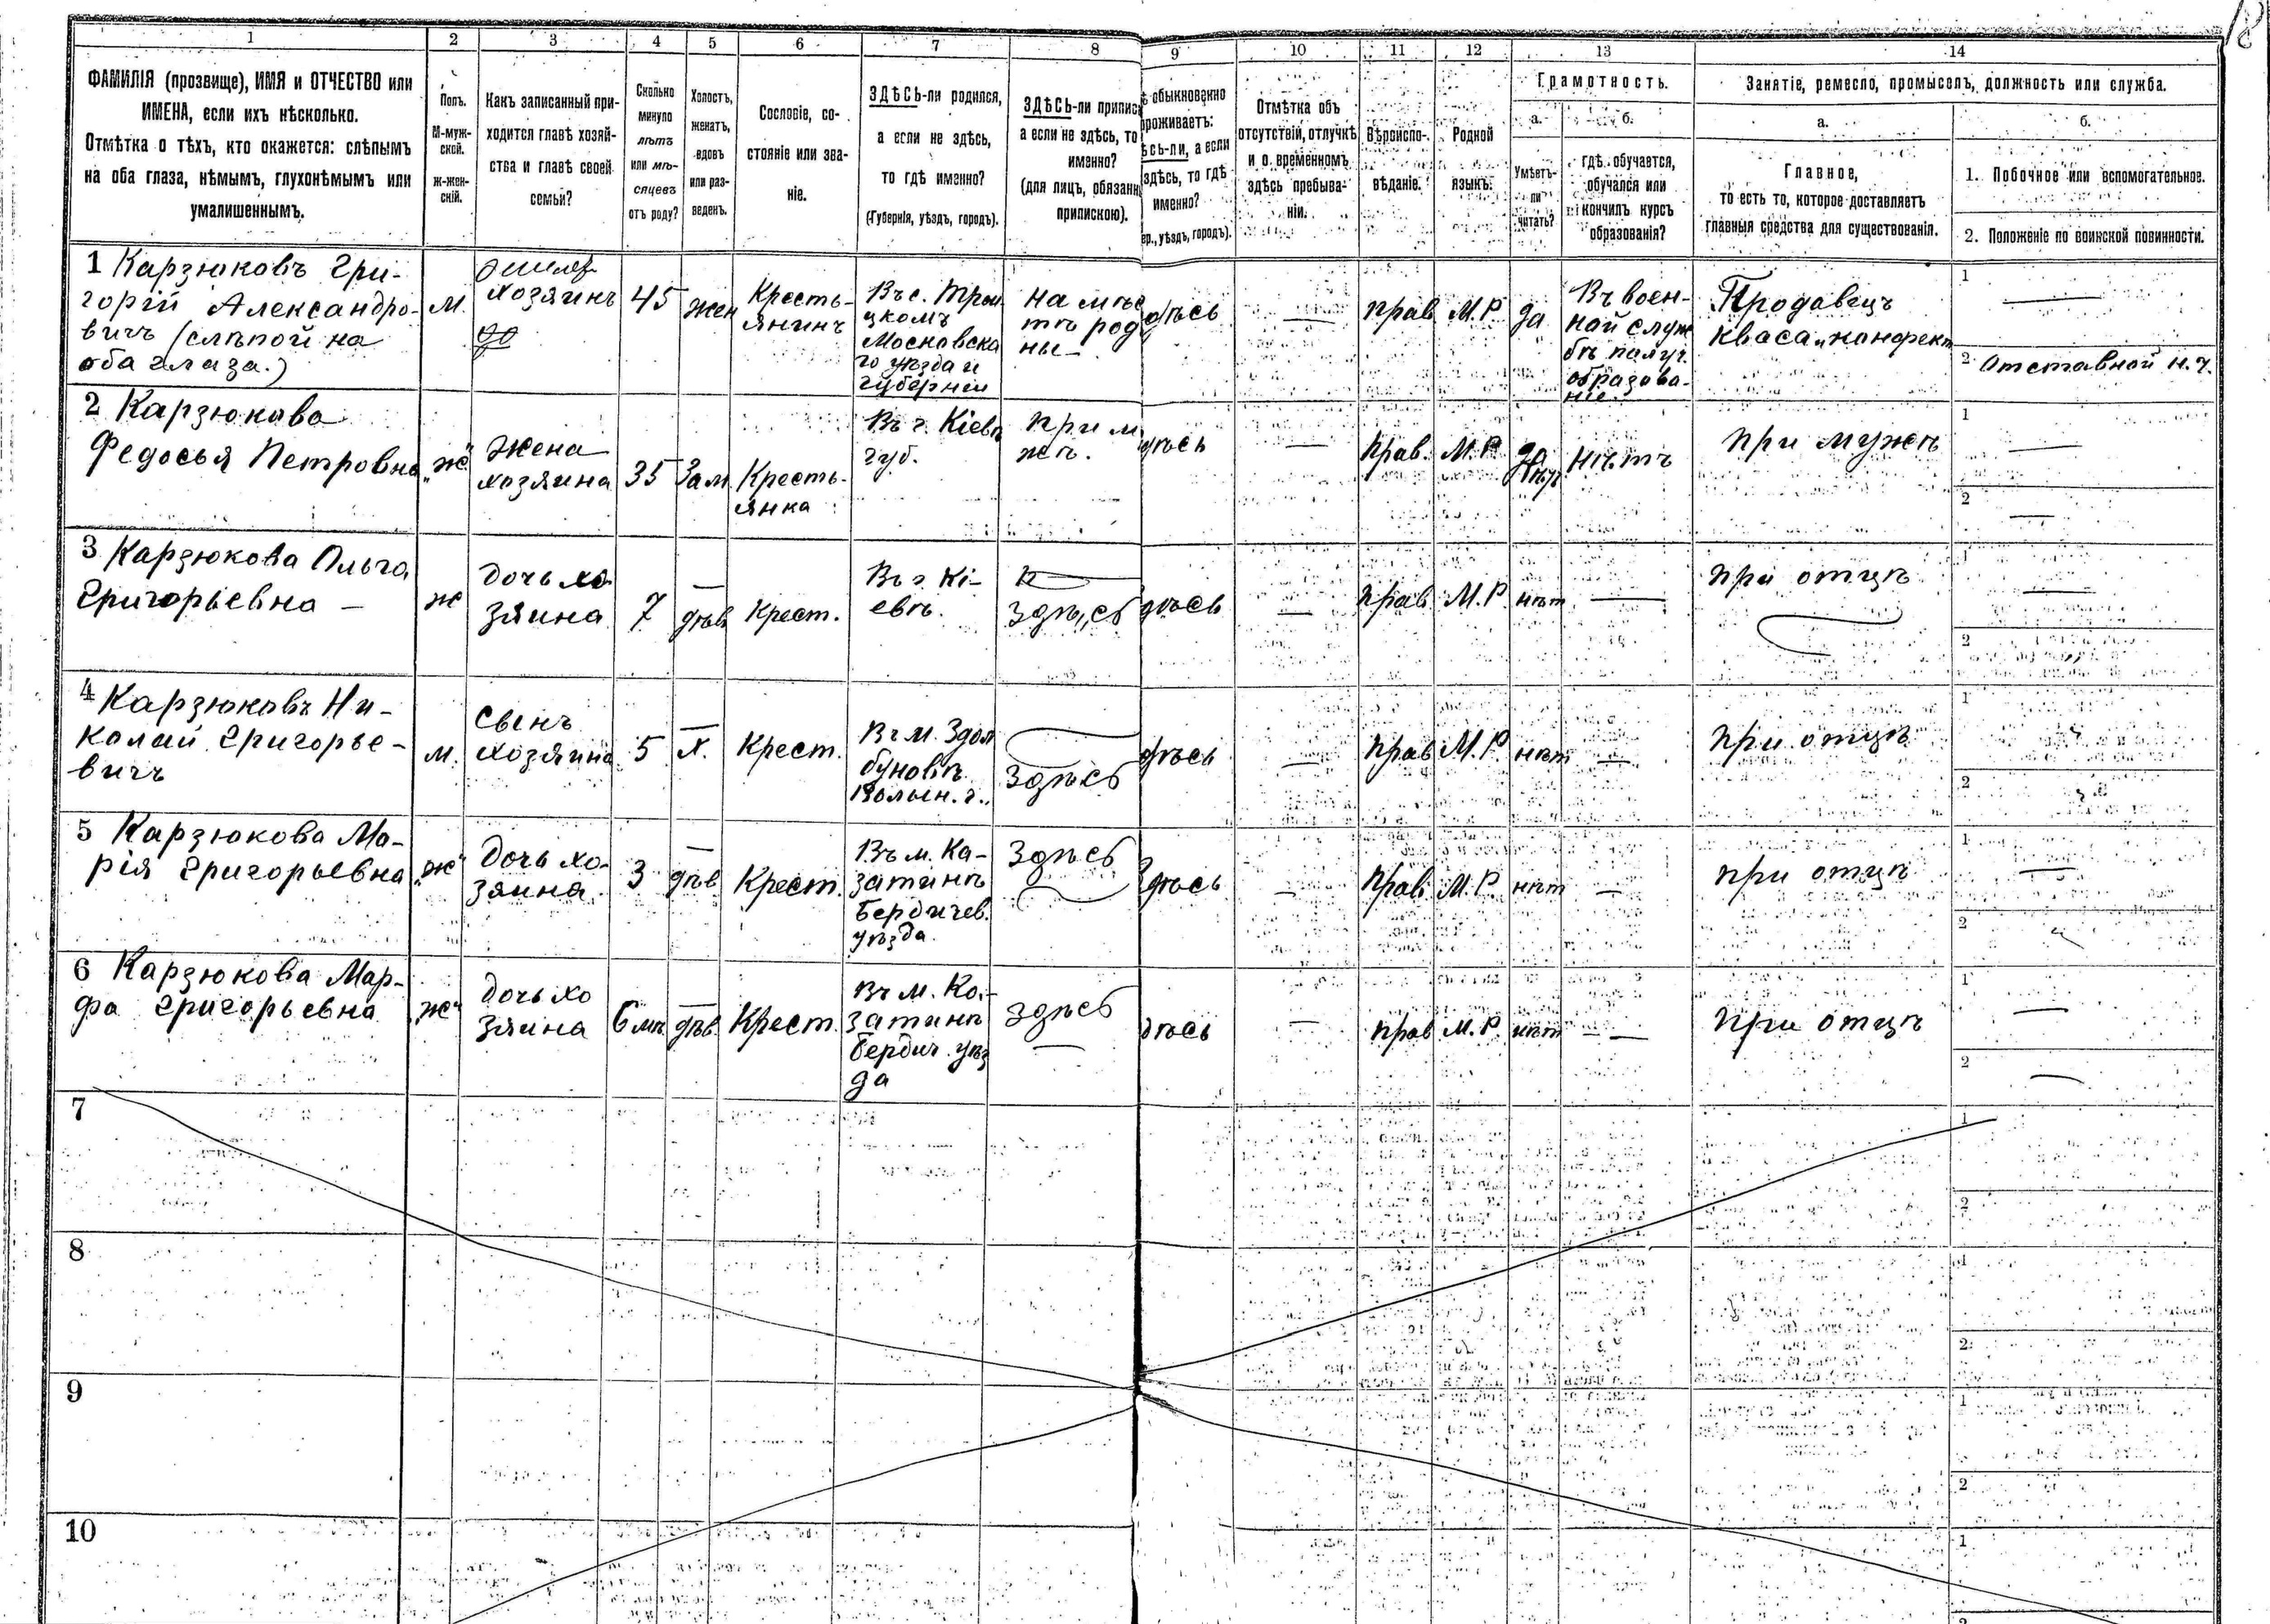 1 2 3 4 5 6 7 8 9 10 11 12 13 14
ФАМИЛІЯ (прозвище), ИМЯ и ОТЧЕСТВО или
ИМЕНА, если ихъ нѣсколько.
Отмѣтка о тѣхъ, кто окажется: слѣпымъ
на оба глаза, нѣмымъ, глухонѣмымъ или
умалишеннымъ.
Полъ.
М-муж-
ской.
ж-жен-
скій.
Какъ записанный при-
ходится главѣ хозяй-
ства и главѣ своей
семьи?
Сколько
минуло
лѣтъ
или мѣ-
сяцевъ
отъ роду?
Холостъ,
женатъ,
вдовъ
или раз-
веденъ.
Сословіе, со-
стояніе или зва-
ніе.
ЗДѢСЬ-ли родился,
а если не здѣсь,
то гдѣ именно?
(Губернія, уѣздъ, городъ).
ЗДѢСЬ-ли припис
а если не здѣсь, то
именно?
(для лицъ, обязанн
припискою).
обыкновенно
роживаетъ:
ѣсь-ли, а если
здѣсь, то гдѣ
именно?
ер., уѣздъ, городъ).
Отмѣтка объ
отсутствіи, отлучкѣ
и о временномъ
здѣсь пребыва-
ніи.
Вѣроиспо-
вѣданіе.
Родной
языкъ.
Грамотность.
а.
Умѣетъ-
ли
читать?
б.
гдѣ обучается,
обучался или
кончилъ курсъ
образованія?
Занятіе, ремесло, промыселъ, должность или служба.
а.
Главное,
то есть то, которое доставляетъ
главныя средства для существованія.
б.
1. Побочное или вспомогательное.
2. Положеніе по воинской повинности.
1 Карзюковъ Гри-
горій Александро-
вичъ (слѣпой на
оба глаза.)
М.
хозяинъ
45
жен
Кресть-
янинъ
Въ с. Трои
цкомъ
Московска
го уѣзда и
губерніи
на мѣс
тѣ роди
ны
здѣсь
—
прав
М.Р.
да
Въ воен-
ной служ
бѣ получ.
образова-
ніе.
Продавецъ
кваса и конфект
1 —
2 Отставной н.ч.
2 Карзюкова
Федосья Петровна
ж
жена
хозяина
35
Зам
Кресть-
янка
Въ г. Кіевѣ
губ.
при му
жѣ.
здѣсь
—
Прав.
М.Р.
нѣтъ
при мужѣ
1 —
2 —
3 Карзюкова Ольга
Григорьевна —
ж
дочь хо
зяина
7
—
дѣв
Крест.
Въ г. Кі-
евѣ.
здѣсь
здѣсь
—
прав
М.Р
нѣт
—
при отцѣ
1 —
2
4 Карзюковъ Ни-
колай Григорье-
вичъ
м.
Сынъ
хозяина
5
—
х.
Крест.
Въ м. Здол
буновѣ
Волын. г.
здѣсь
здѣсь
—
прав
М.Р.
нѣт
—
при отцѣ
1
2
5 Карзюкова Ма-
рія Григорьевна
ж
Дочь хо-
зяина.
3
—
дѣв
Крест.
Въ м. Ка-
затинѣ
Бердичев.
уѣзда.
Здѣсь
Здѣсь
—
прав
М.Р.
нѣт
—
при отцѣ
1 —
2
6 Карзюкова Мар-
фа Григорьевна
ж
дочь хо
зяина
6 мѣ.
—
дѣв.
Крест.
Въ м. Ка-
затинѣ
Бердич. уѣз
да
здѣсь
—
здѣсь
—
прав
М.Р.
нѣт
—
при отцѣ
1 —
2 —
7
1
2
8
2
9
1
2
10
1